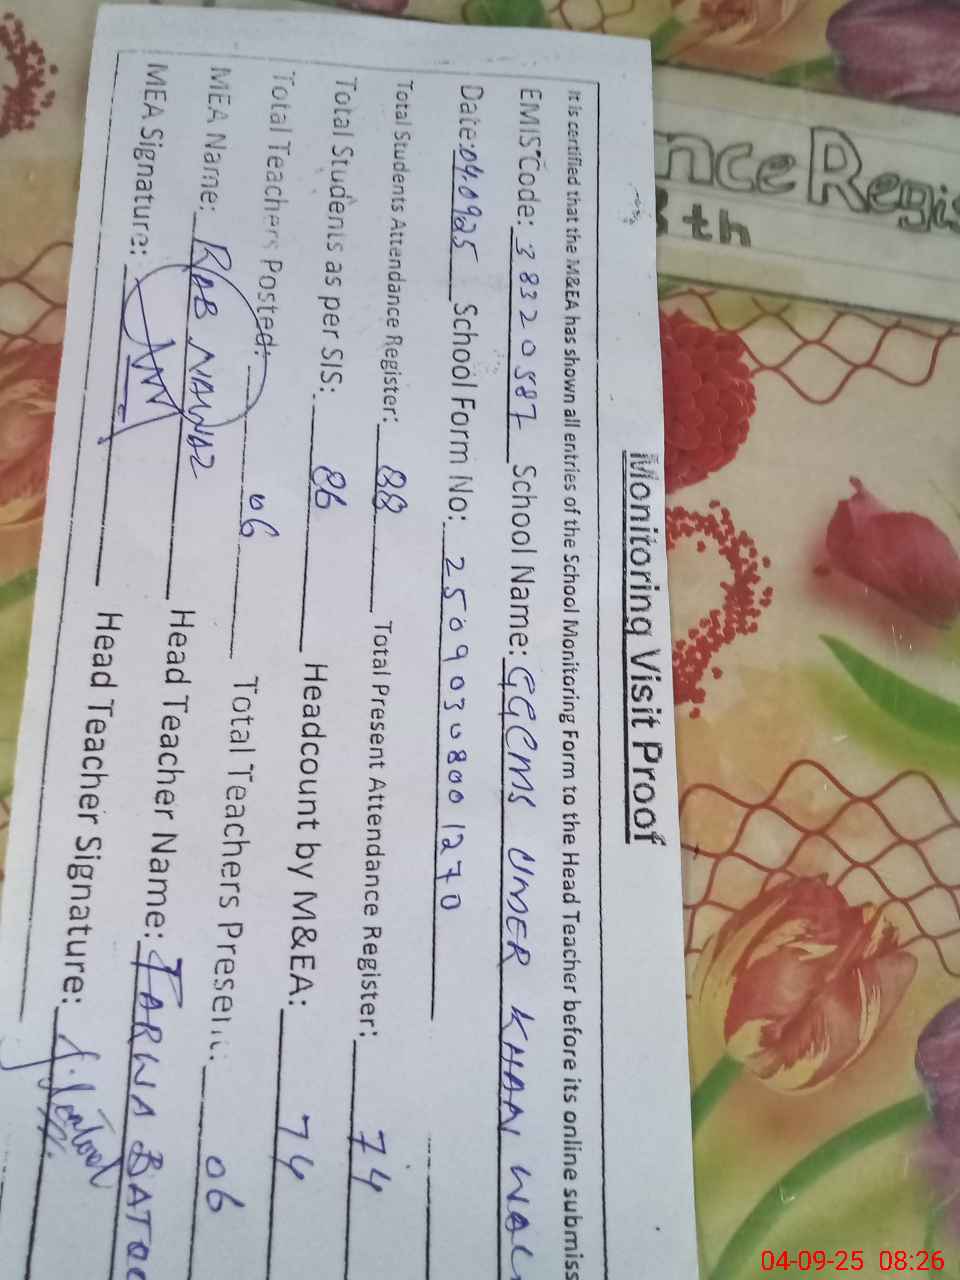 Monitoring Visit Proof
It is certified that the M&EA has shown all entries of the School Monitoring Form to the Head Teacher before its online submiss
EMIS Code: 38320587 School Name: GGCMS UMER KHAN WAL
Date: 04.0925 School Form No: 25090308001270
Total Students Attendance Register: 88 Total Present Attendance Register: 74
Total Students as per SIS: 86 Headcount by M&EA: 74
Total Teachers Posted: 06 Total Teachers Present: 06
MEA Name: RAB NAWAZ Head Teacher Name: TARWA BATOO
MEA Signature: Head Teacher Signature:
nce Regis
8th
04-09-25 08:26